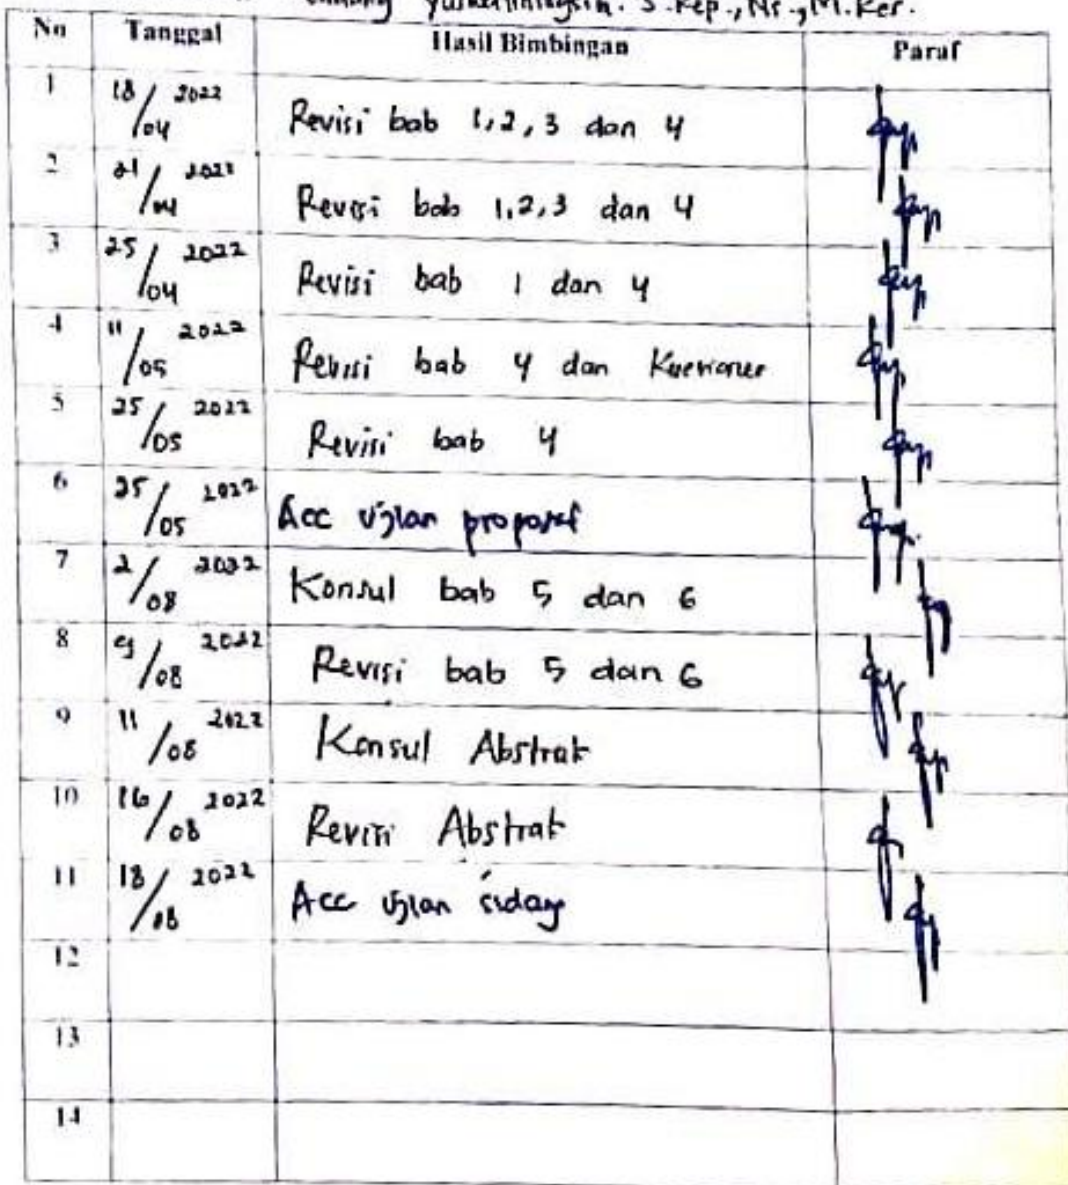 S.Kep., Ns., M.Kes.
No Tanggal Hasil Bimbingan Paraf
1 18/04 2022 Revisi bab 1, 2, 3 dan 4
2 21/04 2022 Revisi bab 1, 2, 3 dan 4
3 25/04 2022 Revisi bab 1 dan 4
4 11/05 2022 Revisi bab 4 dan
5 25/05 2022 Revisi bab 4
6 25/05 2022 Acc Ujian proposal
7 2/08 2022 Konsul bab 5 dan 6
8 9/08 2022 Revisi bab 5 dan 6
9 11/08 2022 Konsul Abstrak
10 16/08 2022 Revisi Abstrak
11 18/08 2022 Acc Ujian sidang
12
13
14